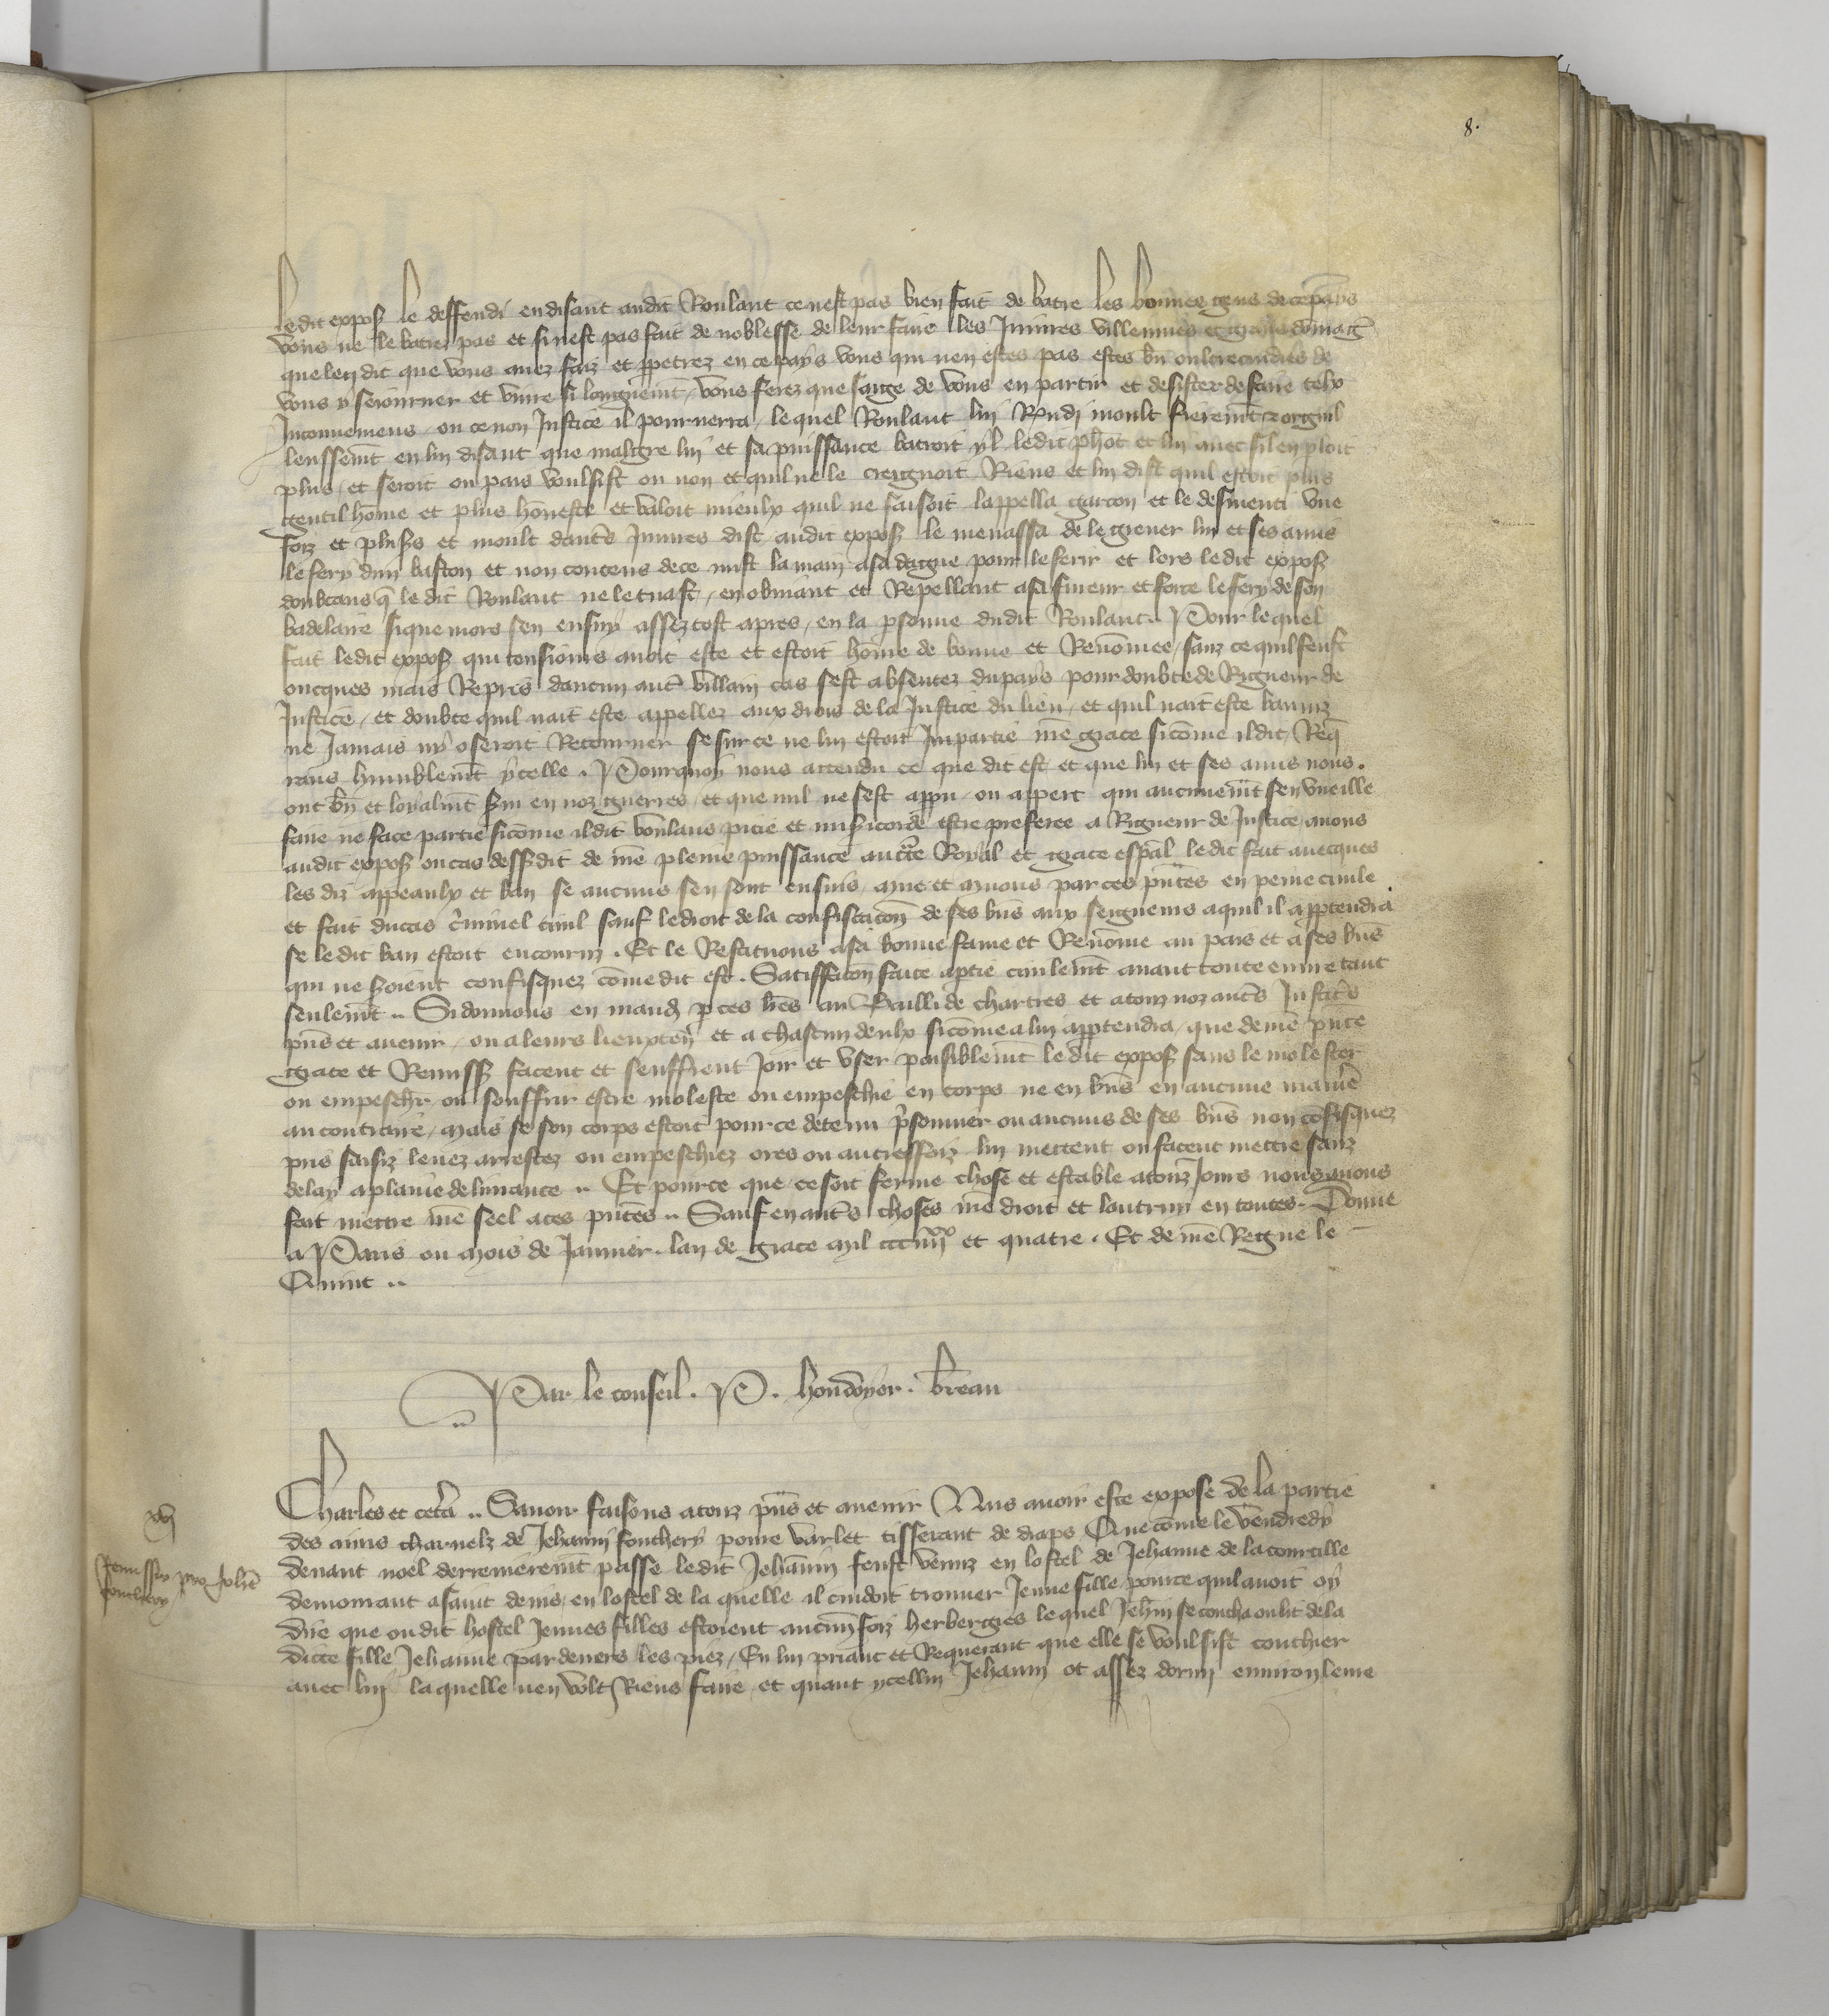 8.
ledit expos le deffendi en disant audit Roulant ce nest pas bien fait de batre les bonnes gens de ce pays
vous ne le batrez pas et si nest pas fait de noblesse de leur faire les Iniures villennies et dōmag
que len dit que vous avez faiz et ppetrez en ce pays vous qui nen estes pas estes bn oultrecuidies de
vous y seiourner et vivre si longuemt vous ferez que sage de vous en partir et desister de faire telx
Inconveniens ou ce non Justice il pourverra lequel Roulant lui Rendi moult fieremt orguil
leussemt en lui disant que malgre lui et sa puissance batroit yl ledit phot et lui avec sil en ploit
plus et seroit ou pais voulsist ou non et quil ne le creignoit Riens et lui dist quil estoit plus
gentil hōme et plus hōneste et valoit mieulx quil ne faisoit lappella garcon et le desmenti une
foiz et plus et moult dautrs Iniures dist audit expos le menassa de le grever lui et ses amis
le fery dun baston et non contens de ce mist la main a sa dague pour le ferir et lors ledit expos
doubtans q̄ le dit Roulant ne le tuast en obviant et Repellant a sa fureur et force le fery de son
badelaire si que mors sen ensuy assez tost apres en la psonne dudit Roulant. Pour lequel
fait ledit expos qui tousiours avoit este et estoit hōme de bonne et Renōmee sanz ce quil feust
oncques mais Repris daucun autr villain cas sest absentez du pays pour doubte de Rigueur de
Justice et doubte quil nait este appellez aux drois de la Justice du lieu et quil nait este banniz
ne Jamais ny oseroit Retourner se sur ce ne lui estoit Impartie nrē grace sicōme il dit Req̄
rans humblemt ycelle. Pourquoy nous attendu ce que dit est et que lui et ses amis nous.
ont bn et loyalmt svi en noz guerres et que nul ne sest appu ou appert qui aucunemt sen vueille
faire ne face partie sicōme il dit voulans pitie et misicorde estre preferee a Rigueur de Justice avons
audit expos ou cas dessdit de nrē pleine puissance auctte Royal et grace espāl ledit fait avecques
les diz appeaulx et ban se aucuns sen sont ensuis mue et muons par ces pntes en peine civile
et fait du cas cminel civil sauf le droit de la confiscacon de ses bns aux seigneurs a quil il apptendra
se le dit ban estoit encouru. Et le Restituons a sa bonne fame et Renōme au pais et a ses bns
qui ne soient confisquez cōme dit est. Satisfacon faite a ptie civilemt avant toute euvre tant
seulemt .. Si donnons en mand p ces lrēs au Bailli de chartres et a touz noz autrs Justicrs
pns et avenir ou a leurs lieuxten et a chascun deulx sicōme a lui apptendra que de nrē pnte
grace et Remiss facent et seuffrent Joir et user paisiblemt le dit expos sans le molester
ou empeschr ou souffrir estre moleste ou empeschie en corps ne en bns en aucune manre
au contraire mais se son corps estoit pour ce detenu prsonnier ou aucuns de ses bns non cōfisquez
pris saisiz levez arrestez ou empeschiez ores ou autreffoiz lui mettent ou facent mettre sanz
delay a plaine delivrance .. Et pour ce que ce soit ferme chose et estable a touz Jours nous avons
fait mettre nrē seel a ces pntes .. Sauf en autrs choses nrē droit et lautruy en toutes. Donne
a Paris ou mois de Janvier. lan de grace mil ccciiijxx et quatre. Et de nrē Regne le
Quint ..
Par le conseil. P. houdoyer. breau
Charles et cetra .. Savoir faisons a touz pns et avenir Nus avoir este expose de la partie
des amis charnelz de Jehanin fouchery povre varlet tisserant de draps Que cōme le vendredy
devant noel derrenieremt passe ledit Jehānin feust venuz en lostel de Jehanne de la courtille
demourant a saint denis en lostel de la quelle il cuidoit trouver Jeune fille pour ce quil avoit oy
dire que ou dit hostel Jeunes filles estoient aucun foiz herbergies le quel Jehin se coucha ou lit de la
dicte fille Jehanne par devers les piez En lui priant et Requerant que elle se voulsist couchier
avec lui la quelle nen volt Riens faire et quant ycellui Jehanin ot assez dormi environ leure
xvj
Remissio pro Johē
fouchery